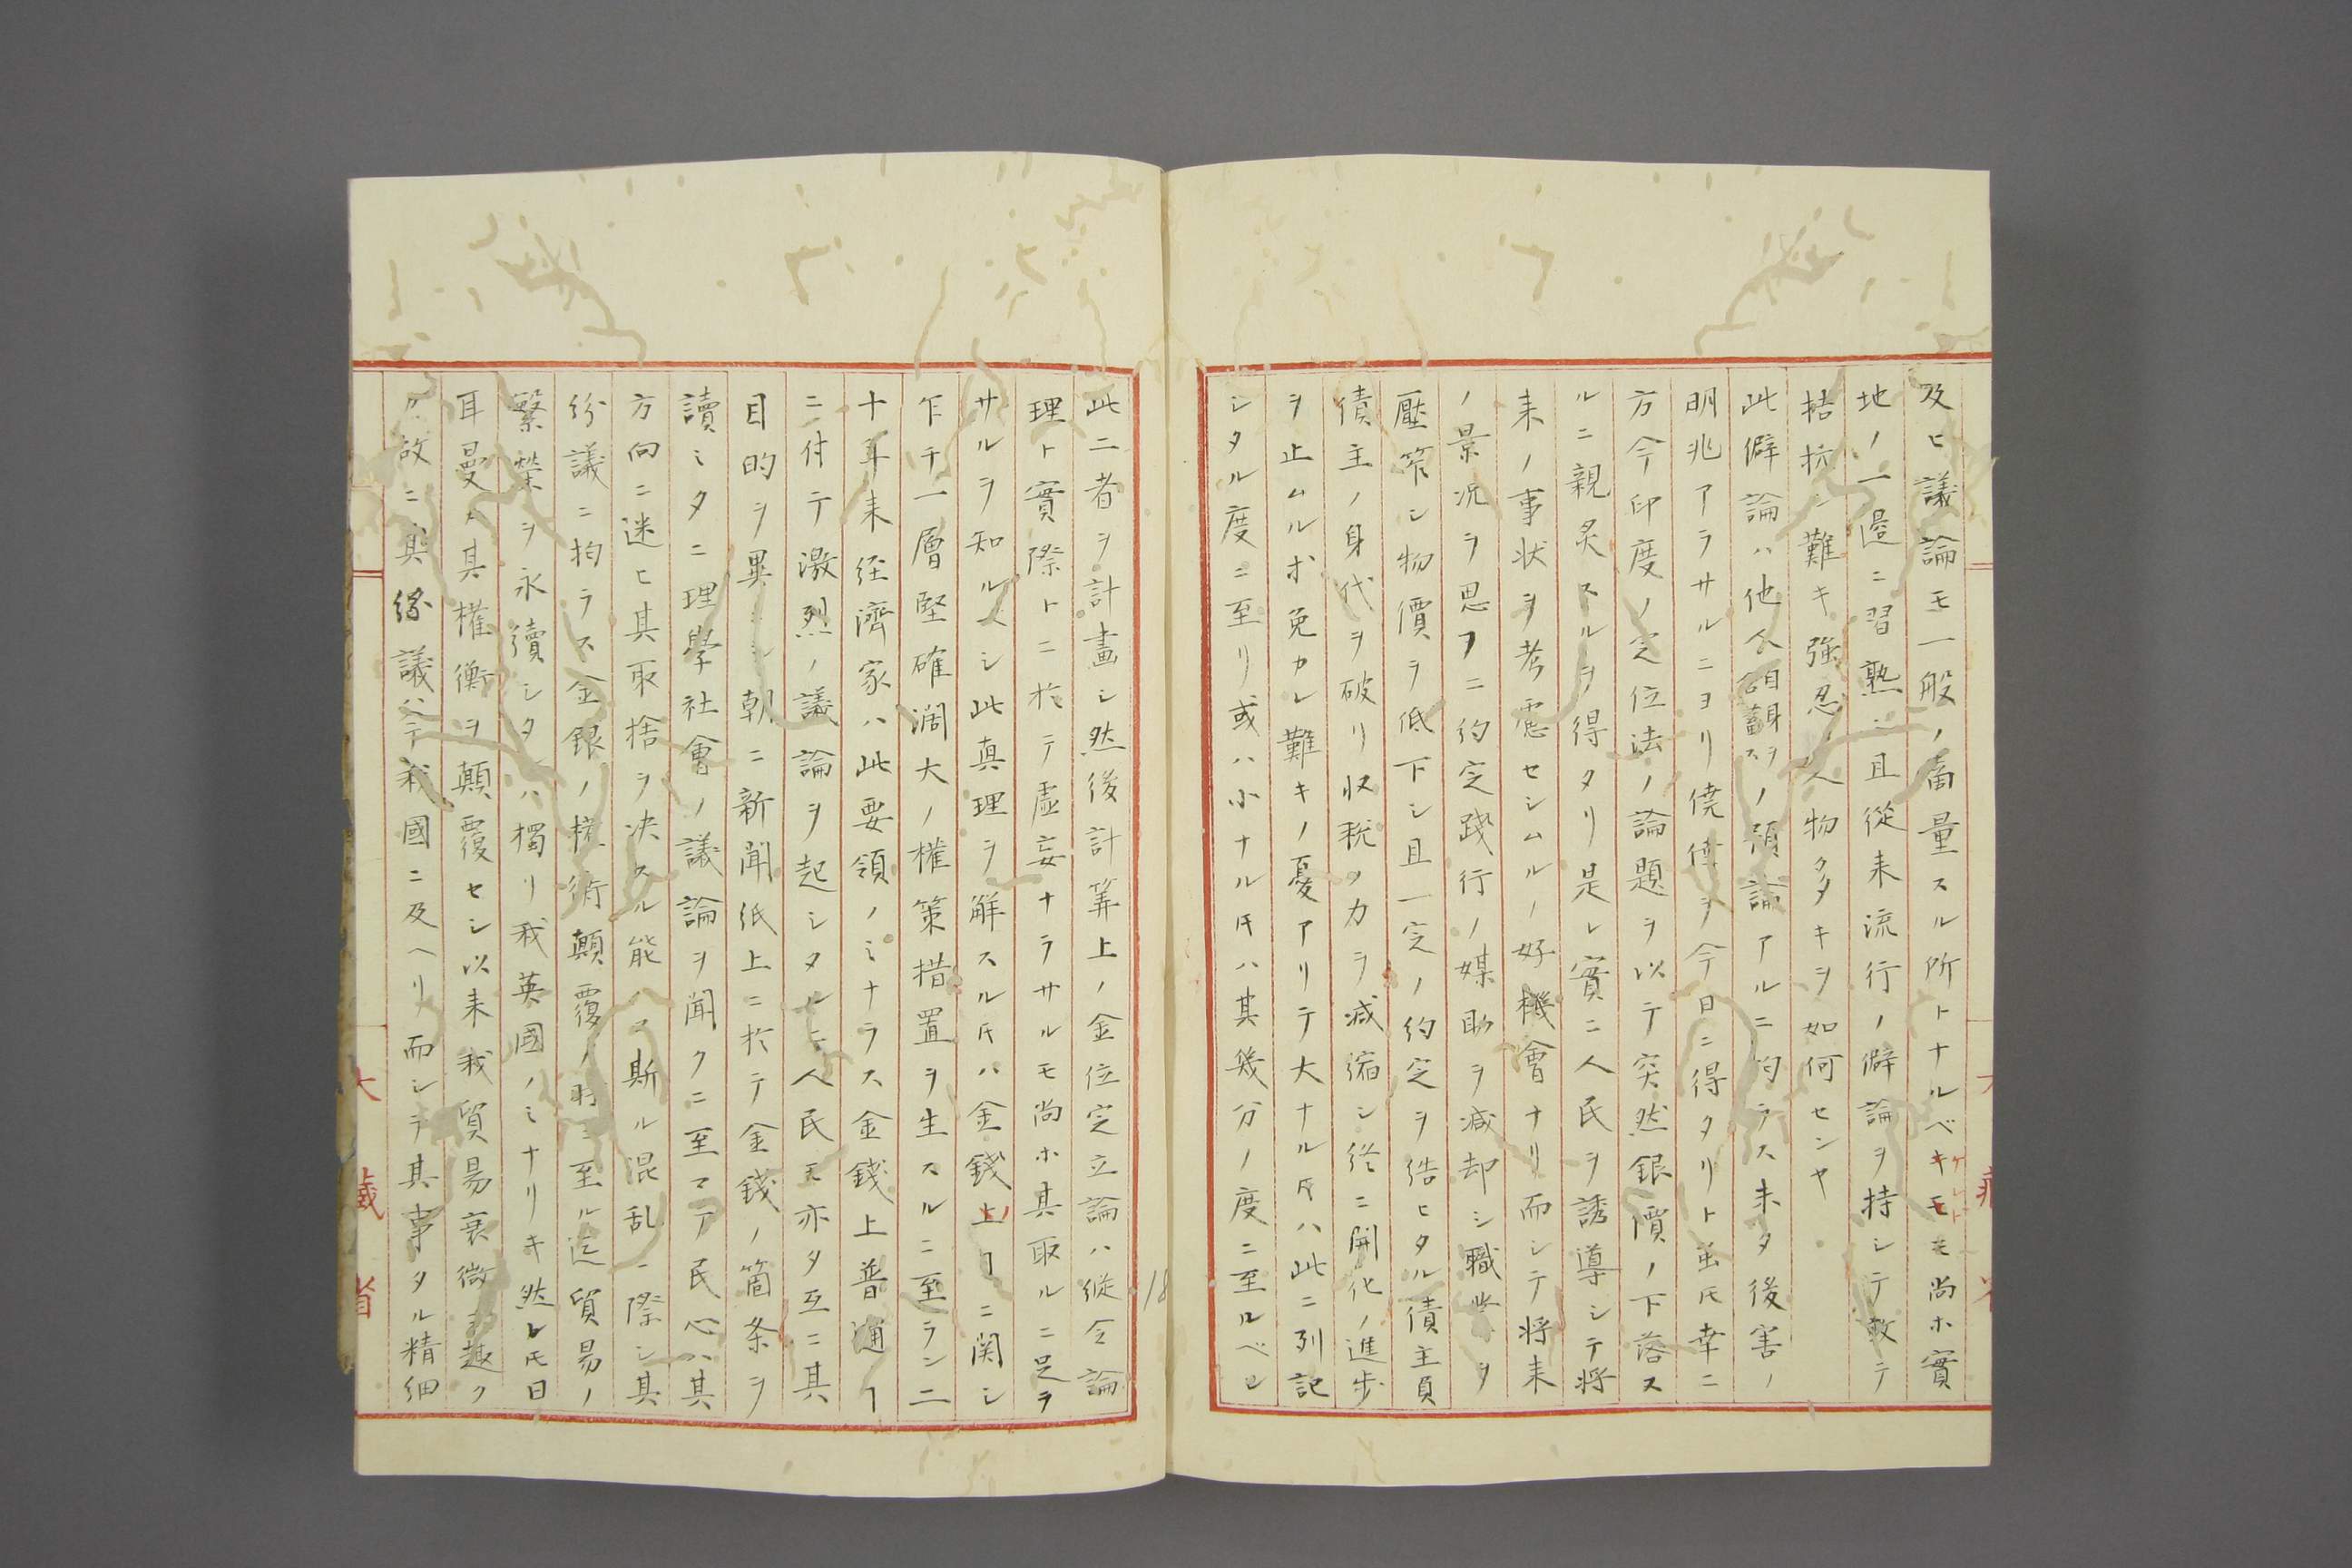 及ヒ議論モ一般ノ商量スル所トナルベキモ尚ホ實
地ノ一邉ニ習熟シ且從来流行ノ僻論ヲ持シテ敢テ
拮抗シ難キ強忍ノ人物夥多キヲ如何センヤ
此僻論ハ他人ノ預論アルニ拘ラス未タ後害ノ
明兆アラサルニヨリ僥倖ヲ今日ニ得タリト虽𪜈幸ニ
方今印度ノ定位法ノ論題ヲ以テ突然銀價ノ下落ス
ルニ親炙スルヲ得タリ是レ實ニ人民ヲ誘導シテ将
来ノ事状ヲ考慮セシムルノ好機會ナリ而シテ将来
ノ景况ヲ思フニ約定践行ノ媒助ヲ減却シ職業ヲ
壓窄シ物價ヲ低下シ且一定ノ約定ヲ結ヒタル債主負
債主ノ身代ヲ破リ収税ノ力ヲ减縮シ終ニ開化ノ進歩
ヲ止ムルホ免カレ難キノ憂アリテ大ナル𪜈ハ此ニ列記
シタル度ニ至リ或ハ小ナル𪜈ハ其幾分ノ度ニ至ルベシ
18
此二者ヲ計畫シ然後計算上ノ金位定立論ハ縱令論
理ト實際トニ於テ虚妄ナラサルモ尚ホ其取ルニ足ラ
サルヲ知ルヘシ此真理ヲ解スル𪜈ハ金錢上ヿニ関シ
乍チ一層堅確濶大ノ權策措置ヲ生スルニ至ラン二
十年来経濟家ハ此要領ノミナラス金錢上普通ヿ
ニ付テ激烈ノ議論ヲ起シタルニ人民モ亦タ互ニ其
目的ヲ異ニシ朝ニ新聞紙上ニ於テ金錢ノ箇条ヲ
讀ミタニ理學社會ノ議論ヲ聞クニ至ツテ民心ハ其
方向ニ迷ヒ其取捨ヲ决スル能ハス斯ル混乱ニ際シ其
紛議ニ拘ラス金銀ノ權衡顛覆ノ時ニ至ル迄貿易ノ
繁榮ヲ永續シタルハ獨リ我英國ノミナリキ然レ𪜈日
耳曼ハ其權衡ヲ顛覆セシ以来我貿易衰微ニ趣ク
ガ故ニ其紛議ハテ我國ニ及ヘリ而シテ其事タル精細
大藏省